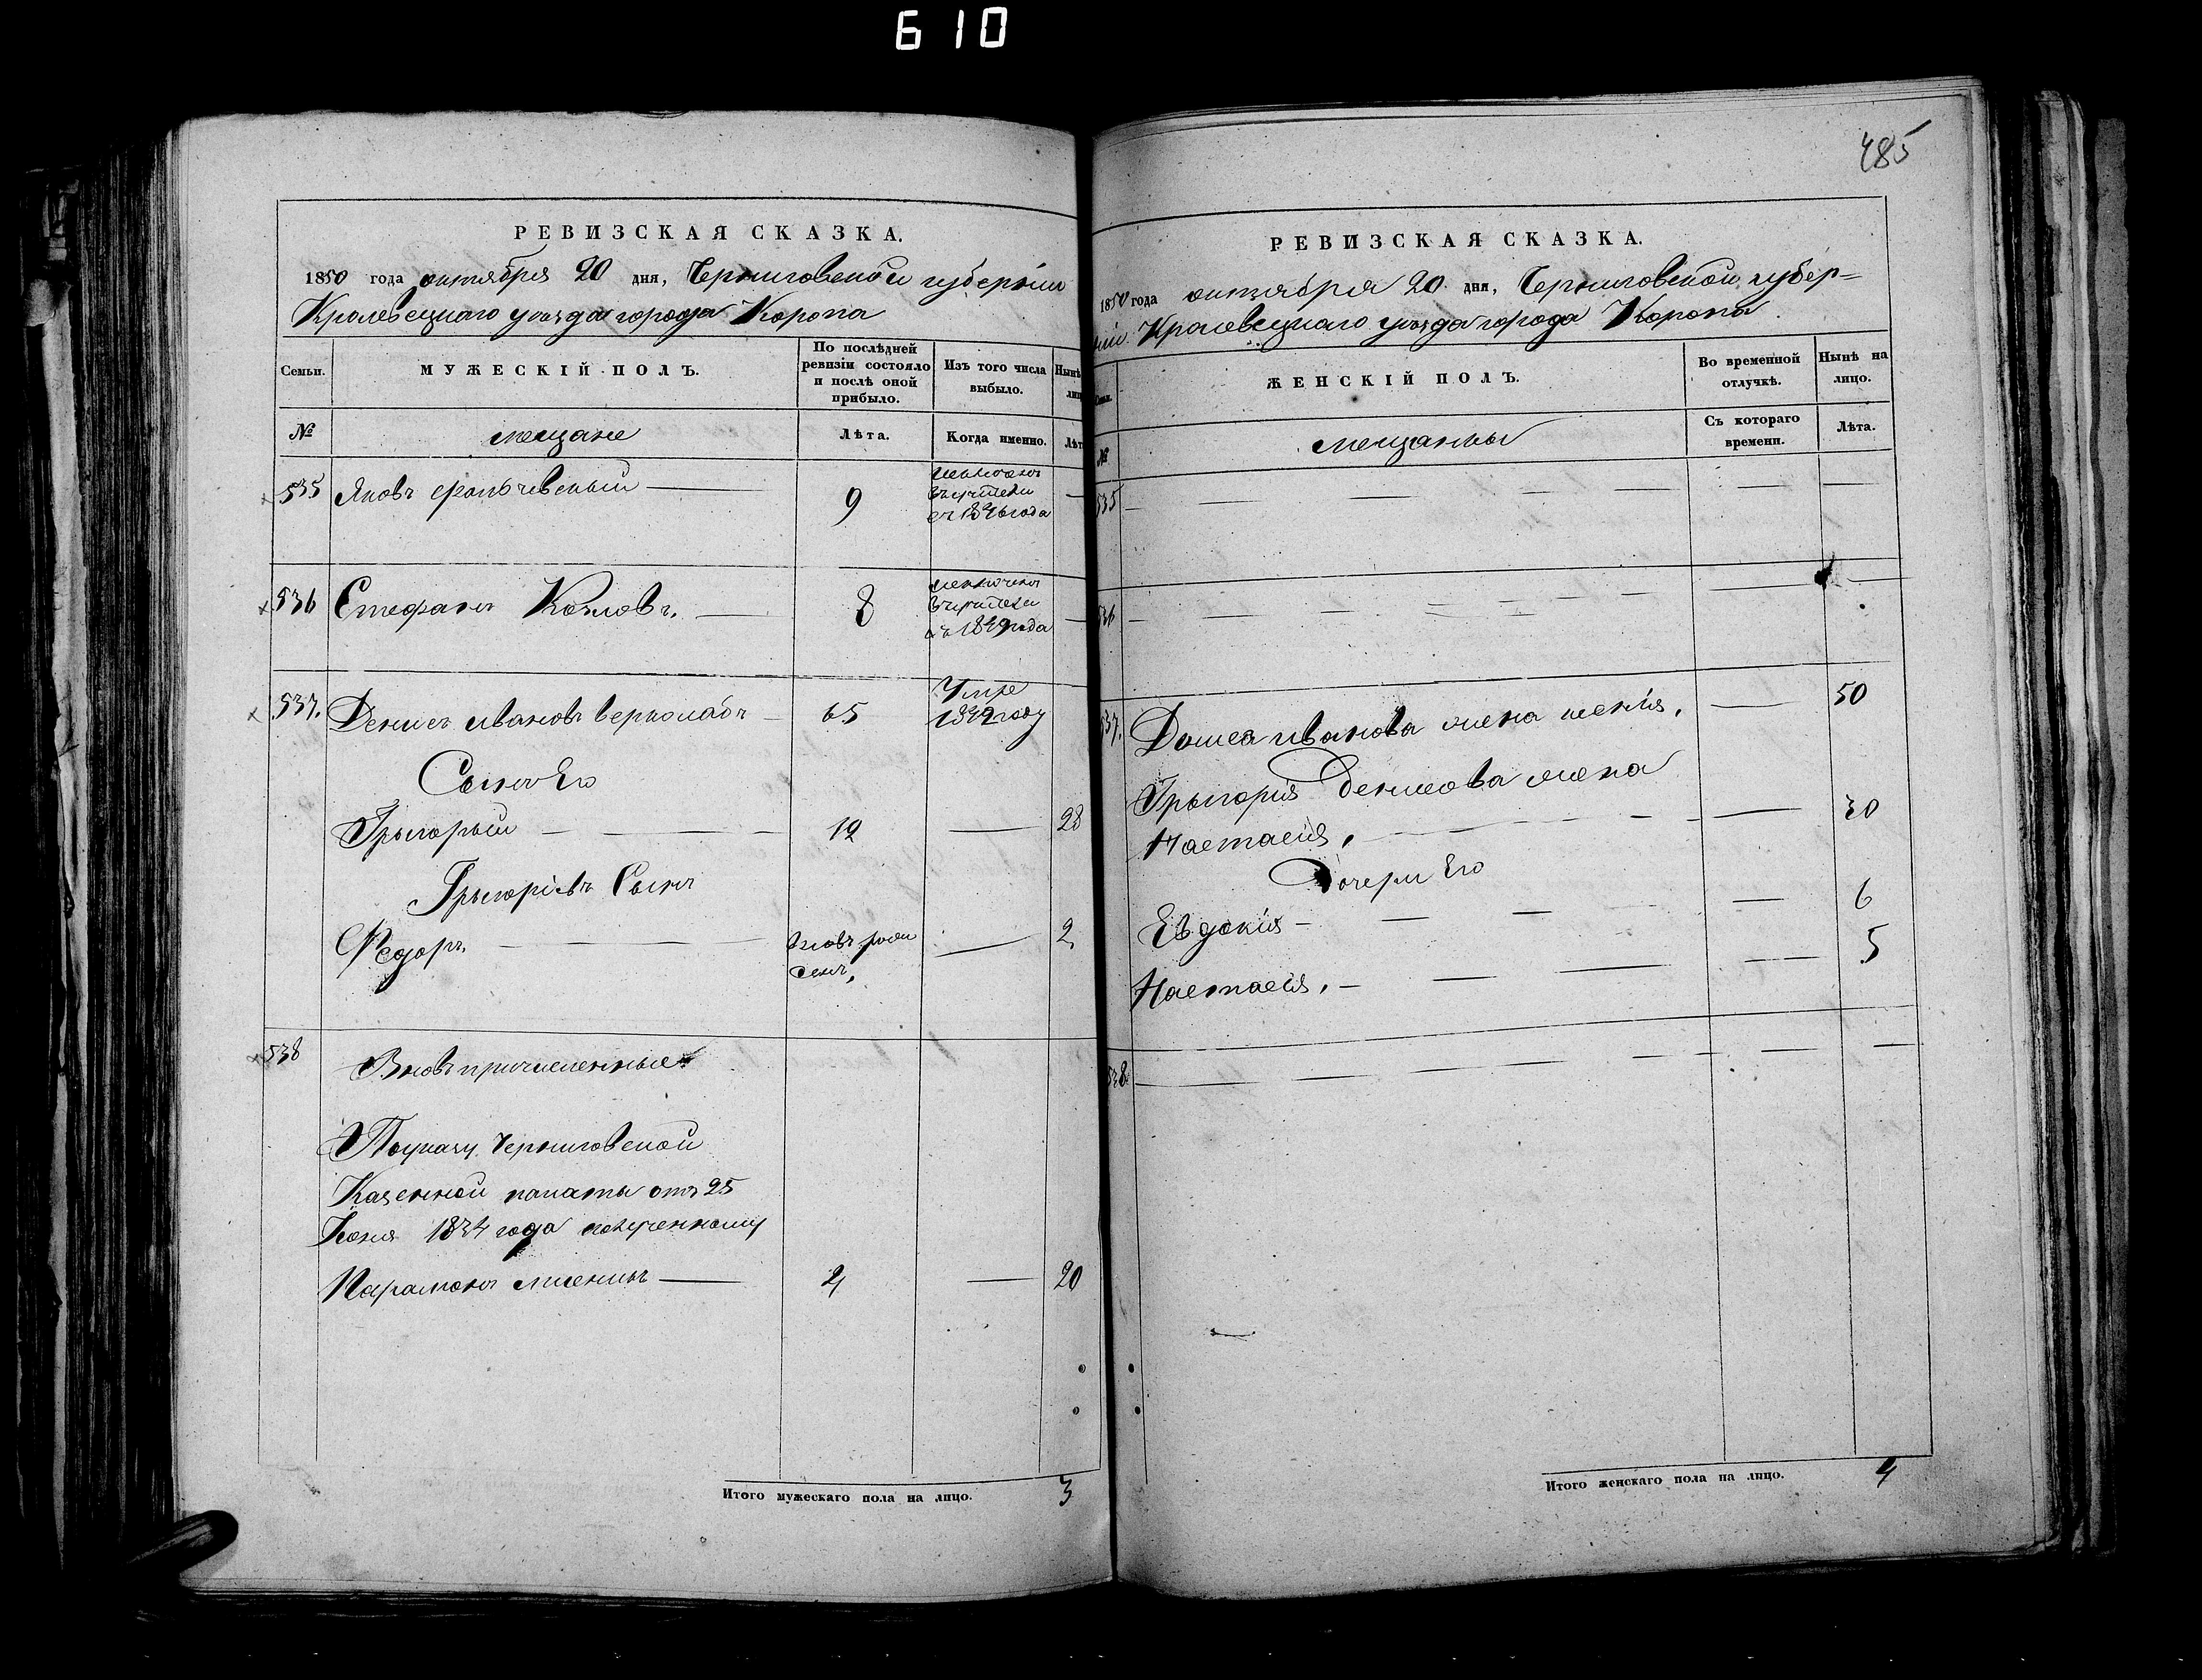 610
485
РЕВИЗСКАЯ СКАЗКА.
1850 года октября 20 дня, Черниговской губерніи
Кролевецкаго уѣзда города Коропа
Семьи.
МУЖЕСКІЙ ПОЛЪ.
По послѣдней ревизіи состояло и послѣ оной прибыло.
Изъ того числа выбыло.
Нынѣ
№
мещане
Лѣта.
Когда именно.
Лѣт
535 Яковъ 9
съ 1846 года
536 Стефанъ Козловъ. 8
съ 1849 года
537. Денисъ Ивановъ 65 Умре 1849 году
Сынъ Его
Грыгорый 12 28
Грыгоріевъ Сынъ
Федоръ. вновь рожденъ, 2
538 Вновь причисленные
По указу Черниговской
Казенной палаты отъ 25
Іюня 1834 года полученному
Парамонъ 4 20
Итого мужескаго пола на лицо. 3
РЕВИЗСКАЯ СКАЗКА.
1850 года октября 20 дня, Черниговской губер=
ніи Кролевецкаго уѣзда города Коропа
ЖЕНСКІЙ ПОЛЪ.
Во временной отлучкѣ.
Нынѣ на лицо.
№
мещанки
Съ котораго времени.
Лѣта.
535
536
537. Дениса Иванова жена 50
Грыгорія Денисова жена
Настасія, 30
Дочери Его
Евдокія 6
Настасія, 5
538
Итого женскаго пола на лицо. 4